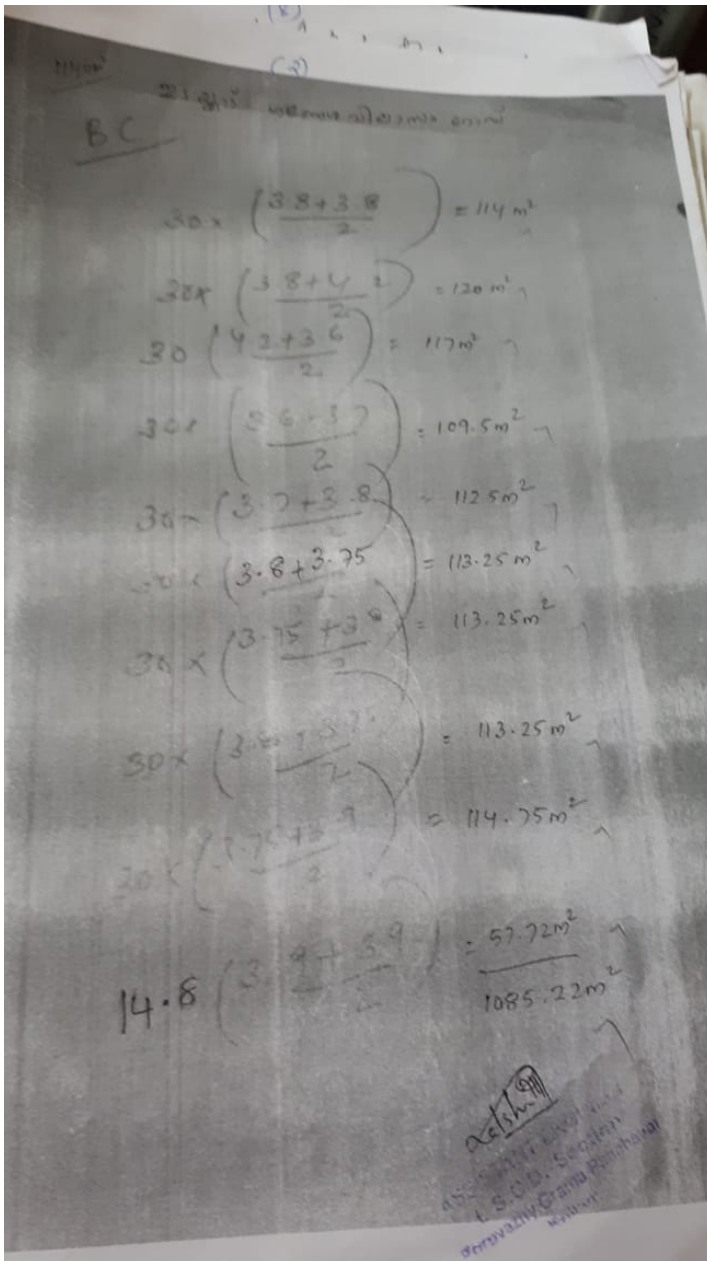 (3)
BC
30 × (3.8+3.8 / 2) = 114 m²
30× (3.8+4.2 / 2) = 120 m²
30 (4.2+3.6 / 2) = 117m²
30× (3.6+3.7 / 2) = 109.5m²
30× (3.7+3.8 / 2) = 112.5m²
30 × (3.8+3.75 = 113.25m²
30 × (3.75+3.8 / 2) = 113.25m²
30× (3.8+3.75 / 2) = 113.25m²
30 × (3.75+3.9 / 2) = 114.75m²
14.8 (3.9+3.9 / 2) = 57.72m²
1085.22m²
L.S.G.D. Section
Grama Panchayat